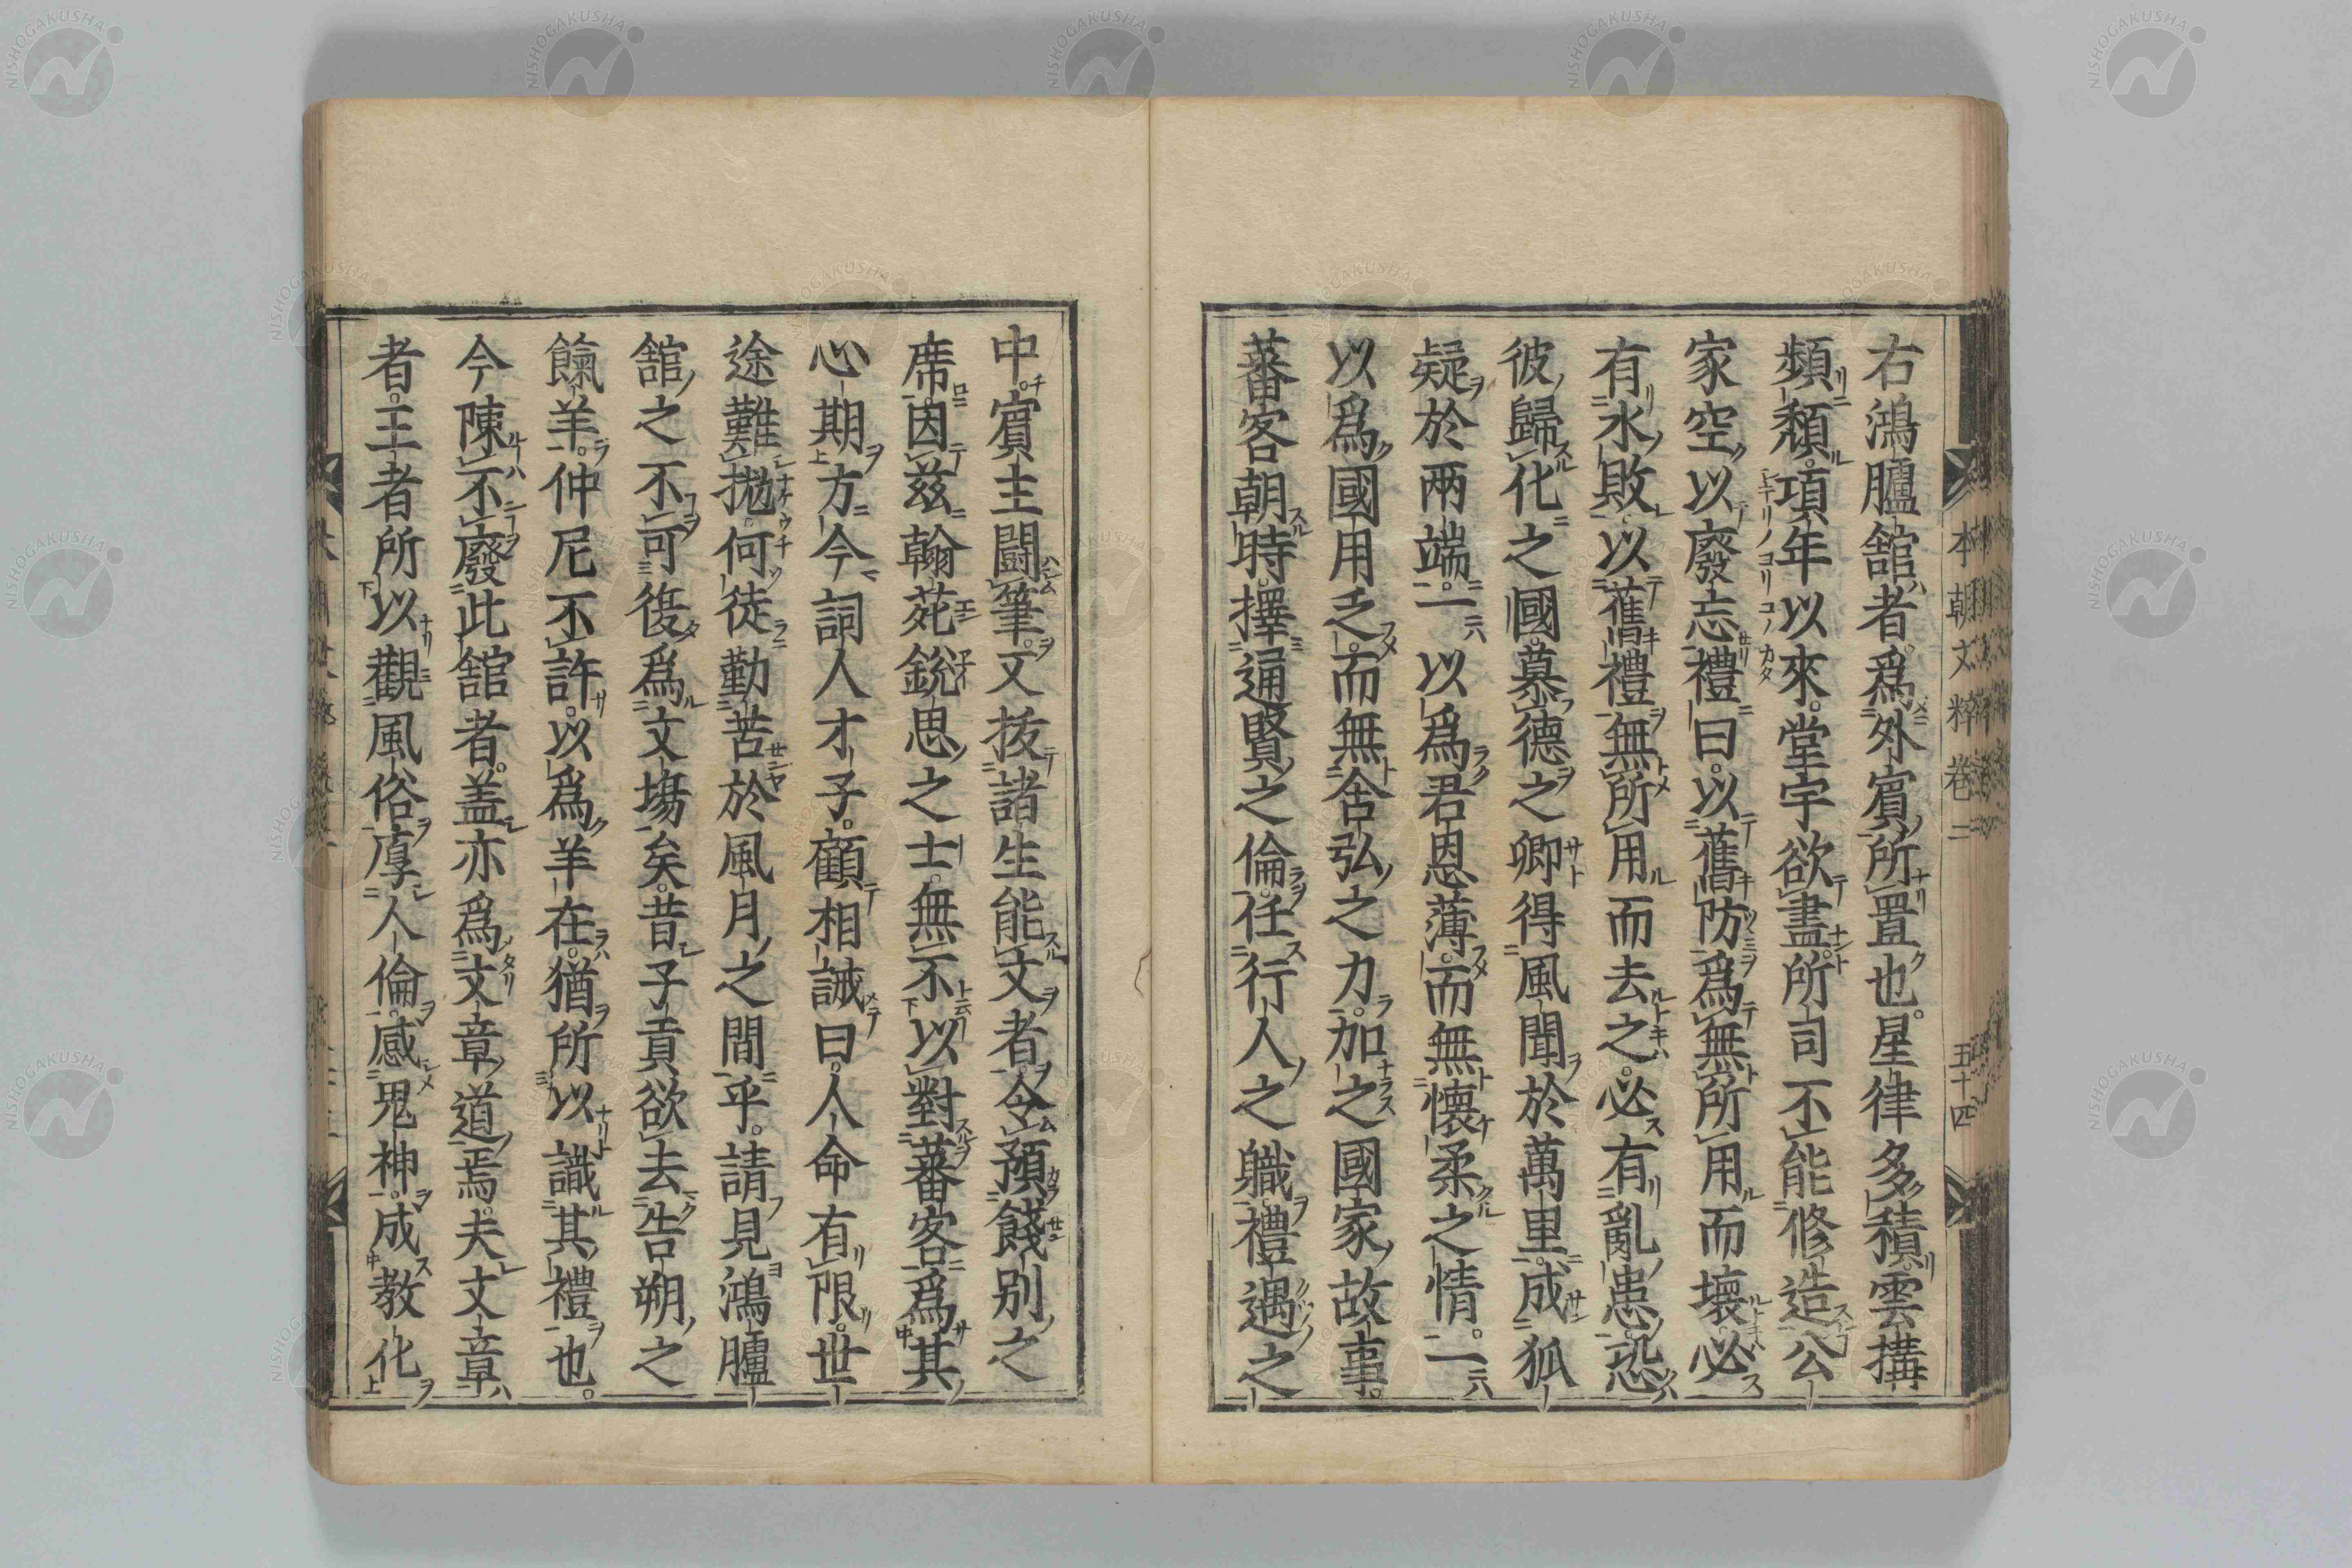 右鴻臚舘者爲外賓所置也星律多積雲搆
頻頽項年以來堂宇欲盡所司不能修造公
家空以廢忘禮曰以舊防爲無所用而壞必
有水敗以舊禮無所用而去之必有亂患恐
彼歸化之國慕德之卿得風聞於萬里成狐
疑於兩端一以爲君恩薄而無懷柔之情二
以爲國用乏而無舍弘之力加之國家故事
蕃客朝時擇通賢之倫任行人之職禮遇之
中賓主鬪筆又拔諸生能文者令預餞別之
席因兹翰苑銳思之士無不以對蕃客爲其
心期方今詞人才子顧相誡曰人命有限世
途難抛何徒勤苦於風月之間乎請見鴻臚
舘之不可復爲文塲矣昔子貢欲去告朔之
餼羊仲尼不許以爲羊在猶所以識其禮也
今陳不廢此舘者盖亦爲文章道焉夫文章
者王者所以觀風俗厚人倫感鬼神成教化
本朝文粹卷二
五十四